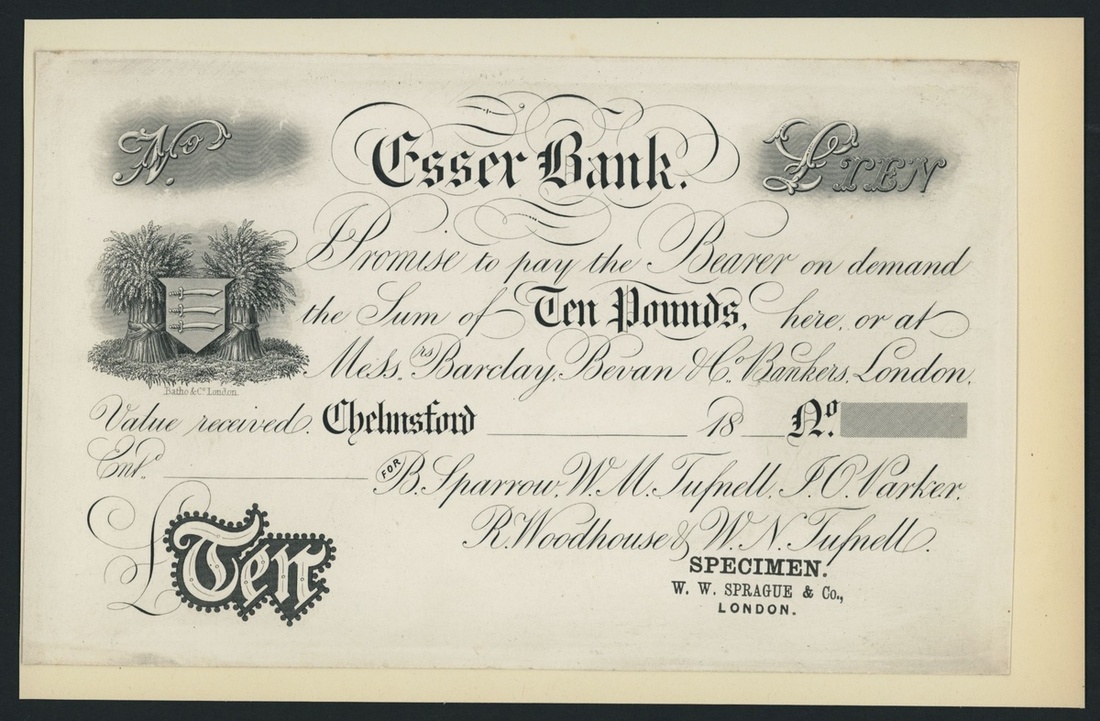 No.
Essex Bank.
£TEN
I Promise to pay the Bearer on demand
the Sum of Ten Pounds, here, or at
Messrs. Barclay, Bevan & Co. Bankers, London.
Batho & Co. London.
Value received. Chelmsford 18 No.
Entd.
FOR B. Sparrow, W. M. Tufnell, J. O. Parker,
R. Woodhouse & W. N. Tufnell.
£Ten
SPECIMEN.
W. W. SPRAGUE & Co.,
LONDON.